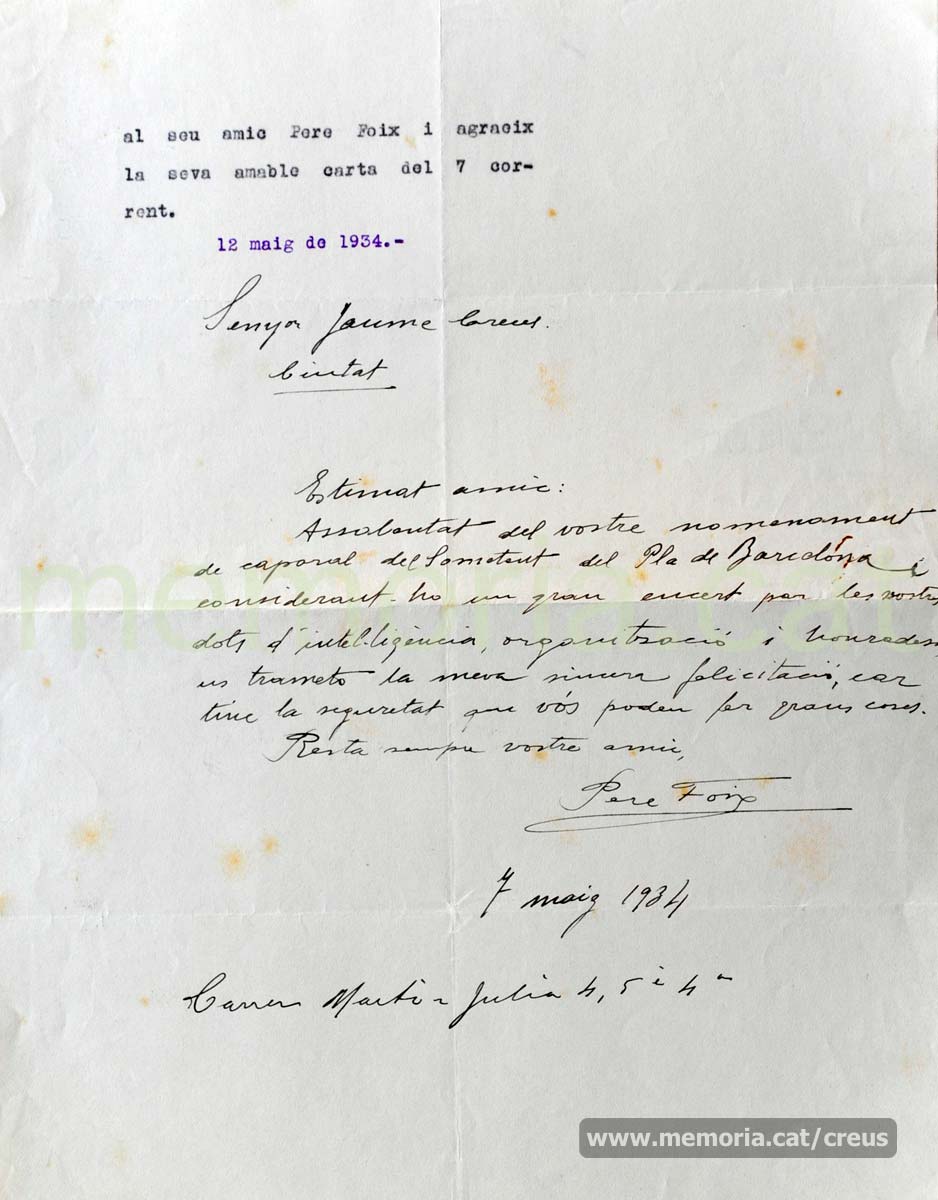 al seu amic Pere Foix i agraeix
la seva amable carta del 7 cor-
rent.
12 maig de 1934.-
Senyor Jaume Creus.
Ciutat
Estimat amic:
Assabentat del vostre nomenament
de caporal del Sometent del Pla de Barcelona i
considerant-ho un gran encert per les vostres
dots d'intel·ligència, organització i honradesa,
us trameto la meva sincera felicitació, car
tinc la seguretat que vós podeu fer grans coses.
Resta sempre vostre amic,
Pere Foix
7 maig 1934
Carrer Martí Julia 4, 5 i 4ª
memoria.cat
www.memoria.cat/creus